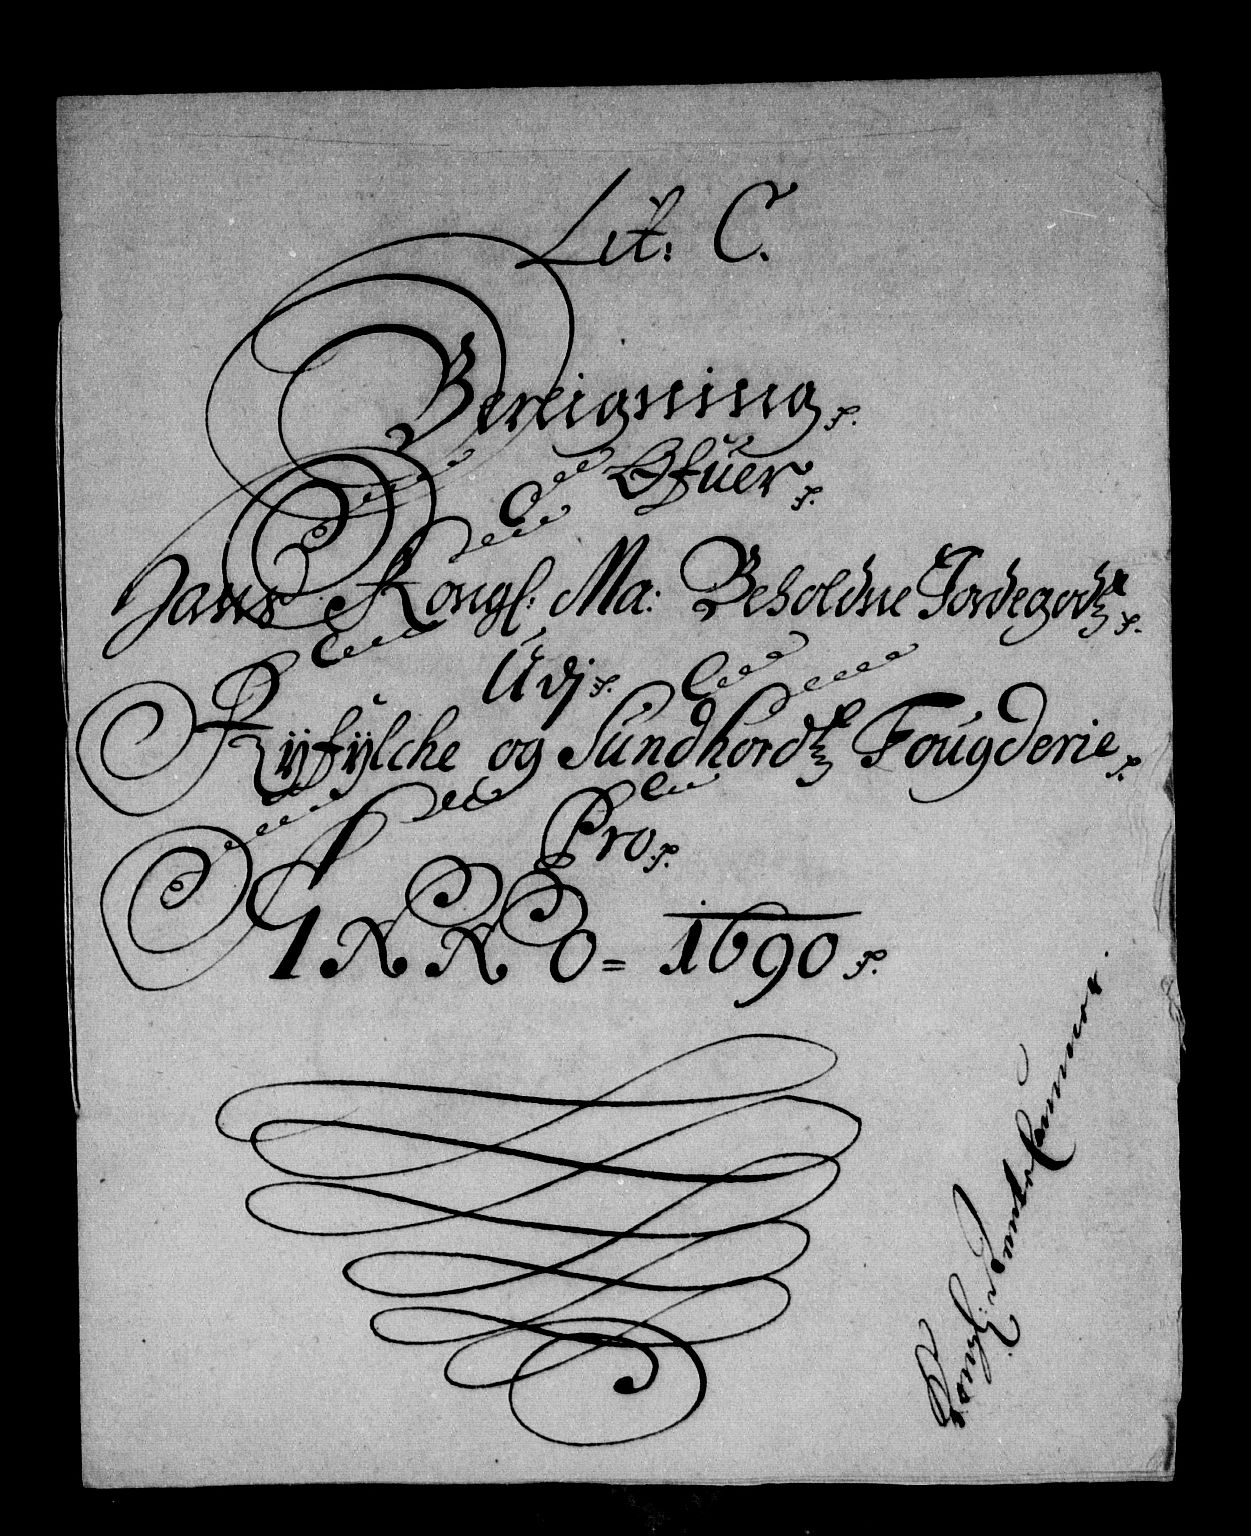 Lit: C.
Bereigning
Ofuer
Hans Kongl: Ma: Beholdne Jordegodtz
Udj
Ryfylche og Sundhordtz Fougderie
Pro
ANNO = 1690
Kongl: Rente Cammer.